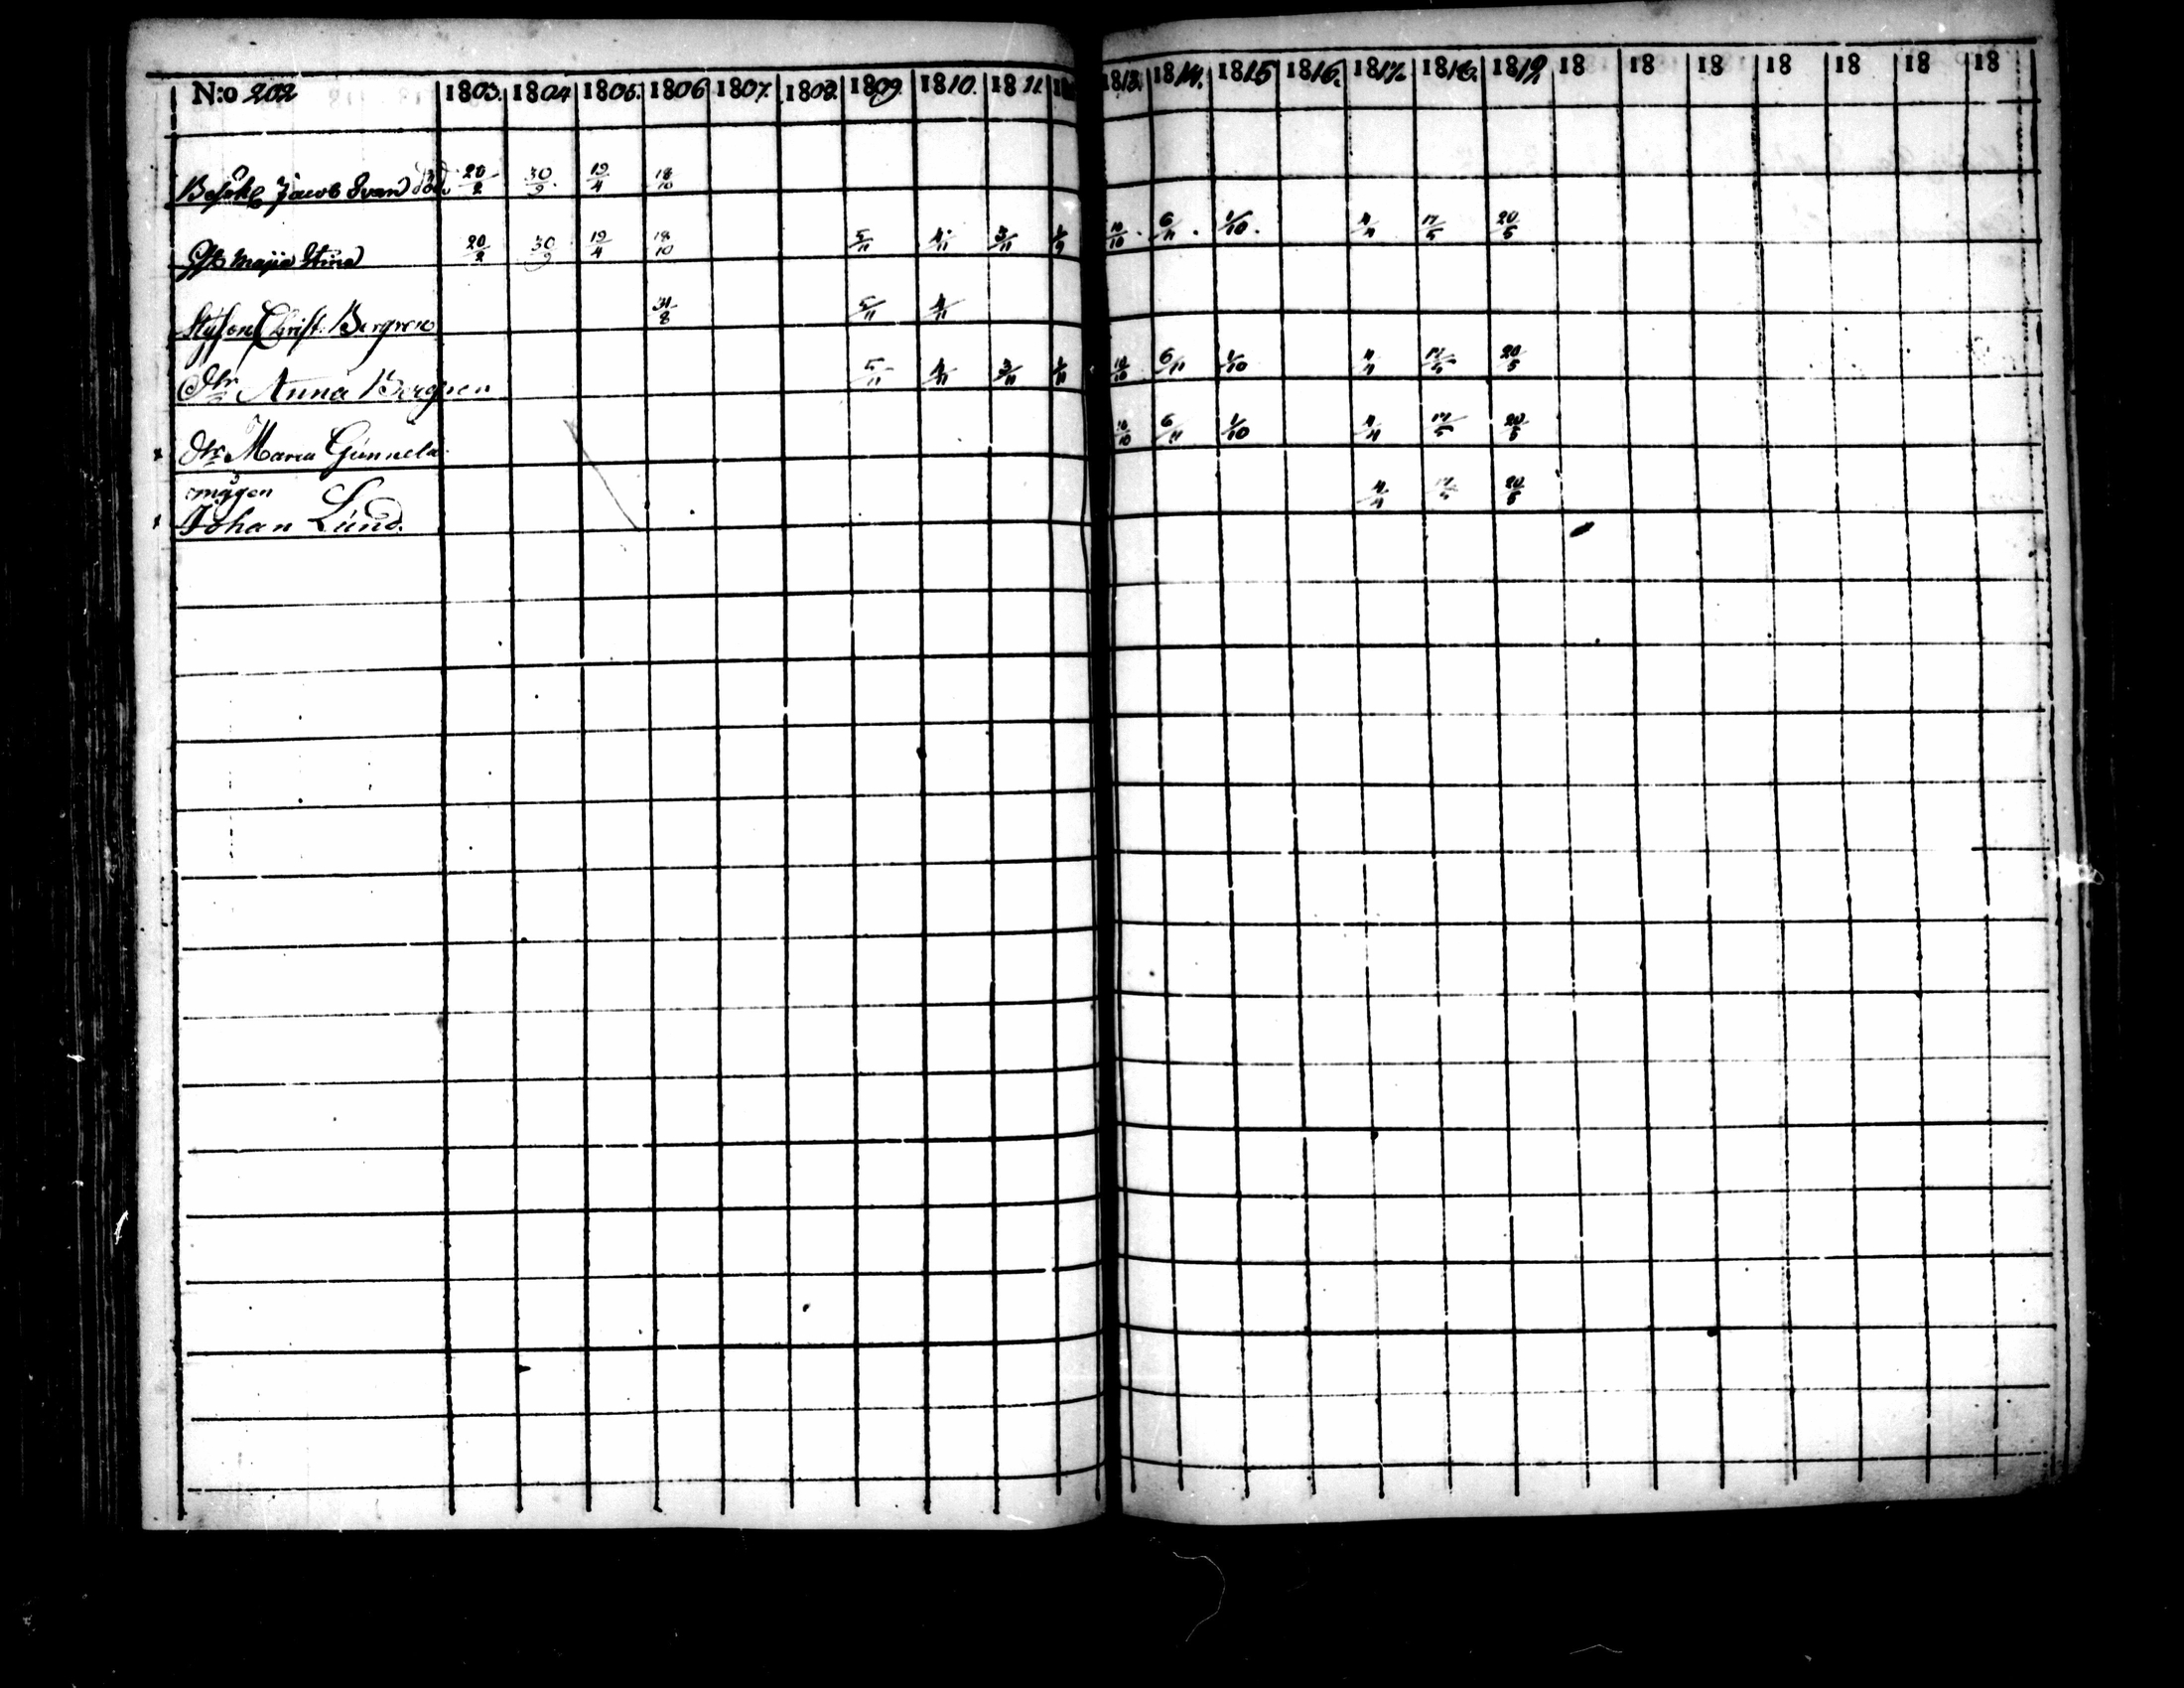 N:o 202 1803. 1804 1805. 1806 1807. 1808. 1809. 1810. 1811. 1813. 1814. 1815 1816. 1817. 1818. 1819. 18 18 18 18 18 18 18
Jacob Svan död 20/2 30/9 19/4 18/10
Maja Stina 20/2 30/9 19/4 18/10 5/11 4/11 3/11 10/10 6/11 1/10 4/4 17/5 20/5
Christ: Bergren 31/8 5/11 4/11
Dtr Anna Bergren 5/11 4/11 3/11 1/11 10/10 6/11 1/10 4/4 17/5 20/5
Dtr Maria Gunnela 10/10 6/11 1/10 4/4 17/5 20/5
mågen
Johan Lund. 4/4 17/5 20/5